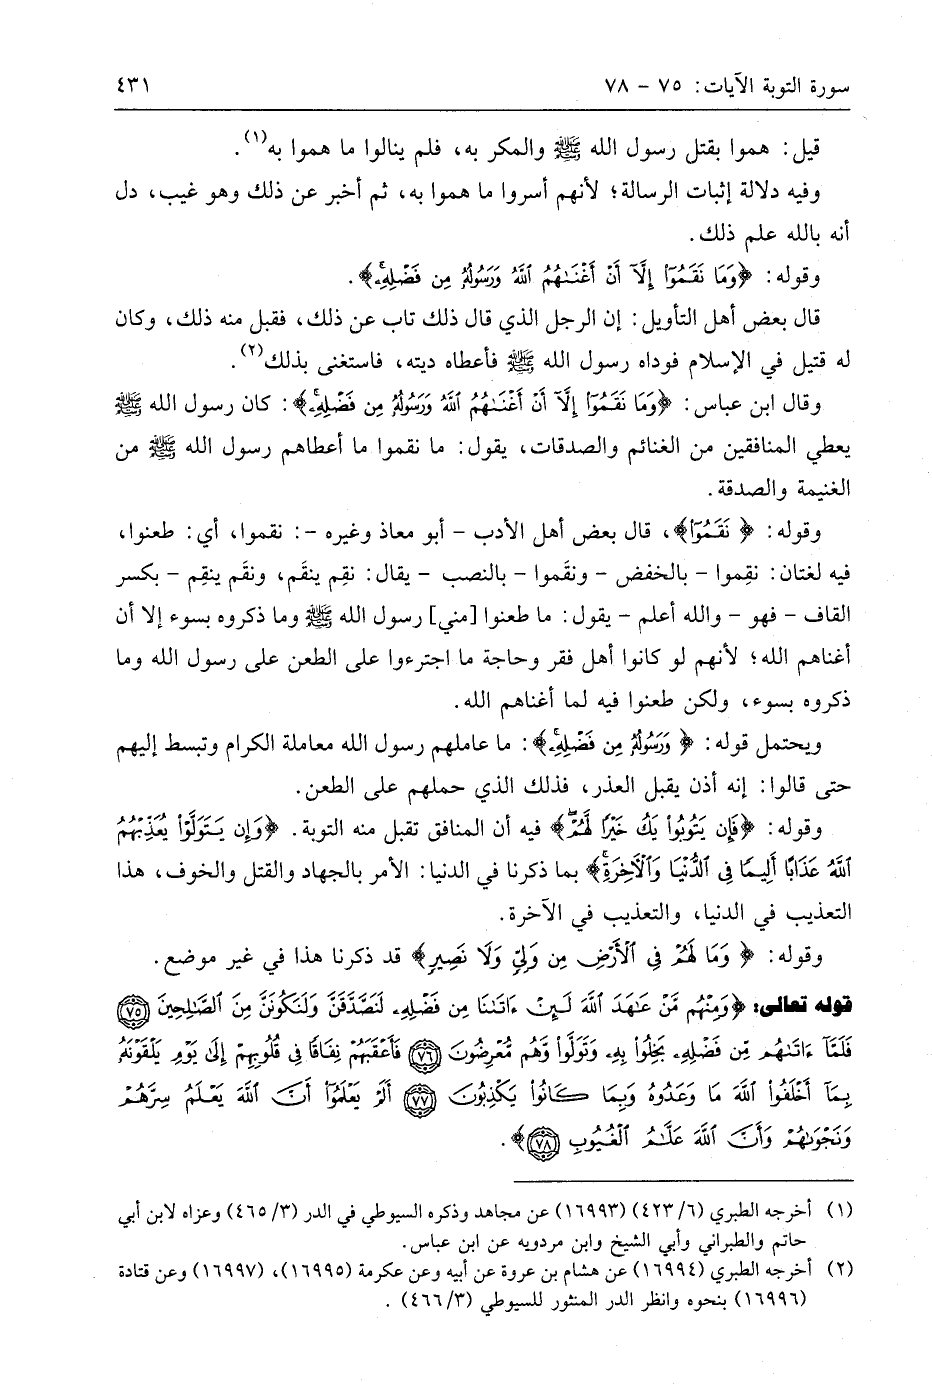 سورة التوبة الآيات: ٧٥ - ٧٨ ٤٣١
قيل: هموا بقتل رسول الله ﷺ والمكر به، فلم ينالوا ما هموا به(١).
وفيه دلالة إثبات الرسالة؛ لأنهم أسروا ما هموا به، ثم أخبر عن ذلك وهو غيب، دل
أنه بالله علم ذلك.
وقوله: ﴿وَمَا نَقَمُوٓا۟ إِلَّآ أَنْ أَغْنَىٰهُمُ ٱللَّهُ وَرَسُولُهُۥ مِن فَضْلِهِۦۚ﴾.
قال بعض أهل التأويل: إن الرجل الذي قال ذلك تاب عن ذلك، فقبل منه ذلك، وكان
له قتيل في الإسلام فوداه رسول الله ﷺ فأعطاه ديته، فاستغنى بذلك(٢).
وقال ابن عباس: ﴿وَمَا نَقَمُوٓا۟ إِلَّآ أَنْ أَغْنَىٰهُمُ ٱللَّهُ وَرَسُولُهُۥ مِن فَضْلِهِۦۚ﴾: كان رسول الله ﷺ
يعطي المنافقين من الغنائم والصدقات، يقول: ما نقموا ما أعطاهم رسول الله ﷺ من
الغنيمة والصدقة.
وقوله: ﴿نَقَمُوٓا۟﴾، قال بعض أهل الأدب - أبو معاذ وغيره -: نقموا، أي: طعنوا،
فيه لغتان: نقِموا - بالخفض - ونقَموا - بالنصب - يقال: نقِم ينقَم، ونقَم ينقِم - بكسر
القاف - فهو - والله أعلم - يقول: ما طعنوا [مني] رسول الله ﷺ وما ذكروه بسوء إلا أن
أغناهم الله؛ لأنهم لو كانوا أهل فقر وحاجة ما اجترءوا على الطعن على رسول الله وما
ذكروه بسوء، ولكن طعنوا فيه لما أغناهم الله.
ويحتمل قوله: ﴿وَرَسُولُهُۥ مِن فَضْلِهِۦۚ﴾: ما عاملهم رسول الله معاملة الكرام وتبسط إليهم
حتى قالوا: إنه أذن يقبل العذر، فذلك الذي حملهم على الطعن.
وقوله: ﴿فَإِن يَتُوبُوا۟ يَكُ خَيْرًا لَّهُمْۖ﴾ فيه أن المنافق تقبل منه التوبة. ﴿وَإِن يَتَوَلَّوْا۟ يُعَذِّبْهُمُ
ٱللَّهُ عَذَابًا أَلِيمًا فِى ٱلدُّنْيَا وَٱلْءَاخِرَةِۚ﴾ بما ذكرنا في الدنيا: الأمر بالجهاد والقتل والخوف، هذا
التعذيب في الدنيا، والتعذيب في الآخرة.
وقوله: ﴿وَمَا لَهُمْ فِى ٱلْأَرْضِ مِن وَلِىٍّ وَلَا نَصِيرٍ﴾ قد ذكرنا هذا في غير موضع.
قوله تعالى: ﴿وَمِنْهُم مَّنْ عَٰهَدَ ٱللَّهَ لَئِنْ ءَاتَىٰنَا مِن فَضْلِهِۦ لَنَصَّدَّقَنَّ وَلَنَكُونَنَّ مِنَ ٱلصَّٰلِحِينَ ٧٥
فَلَمَّآ ءَاتَىٰهُم مِّن فَضْلِهِۦ بَخِلُوا۟ بِهِۦ وَتَوَلَّوا۟ وَّهُم مُّعْرِضُونَ ٧٦ فَأَعْقَبَهُمْ نِفَاقًا فِى قُلُوبِهِمْ إِلَىٰ يَوْمِ يَلْقَوْنَهُۥ
بِمَآ أَخْلَفُوا۟ ٱللَّهَ مَا وَعَدُوهُ وَبِمَا كَانُوا۟ يَكْذِبُونَ ٧٧ أَلَمْ يَعْلَمُوٓا۟ أَنَّ ٱللَّهَ يَعْلَمُ سِرَّهُمْ
وَنَجْوَىٰهُمْ وَأَنَّ ٱللَّهَ عَلَّٰمُ ٱلْغُيُوبِ ٧٨﴾.
(١) أخرجه الطبري (٦/ ٤٢٣) (١٦٩٩٣) عن مجاهد وذكره السيوطي في الدر (٣/ ٤٦٥) وعزاه لابن أبي
حاتم والطبراني وأبي الشيخ وابن مردويه عن ابن عباس.
(٢) أخرجه الطبري (١٦٩٩٤) عن هشام بن عروة عن أبيه وعن عكرمة (١٦٩٩٥)، (١٦٩٩٧) وعن قتادة
(١٦٩٩٦) بنحوه وانظر الدر المنثور للسيوطي (٣/ ٤٦٦).